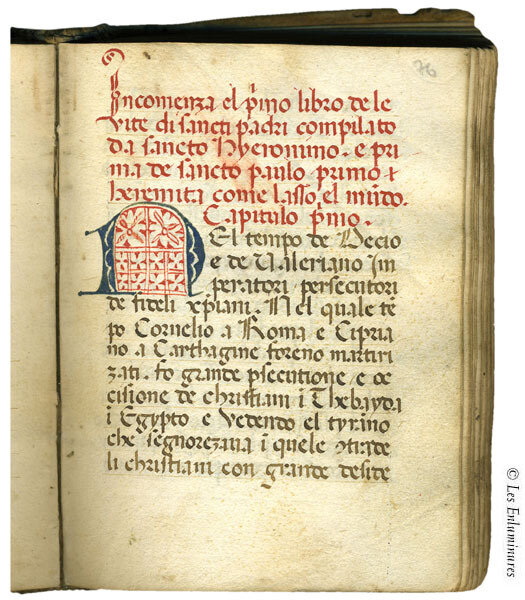 76
Incomenza el p̄mo libro de le
vite di sancti padri compilato
da sancto Hyeronimo. e pri
ma de sancto paulo primo
heremita come lasso el mūdo.
Capitulo p̄mo.
NEl tempo de Decio
e de Valeriano im
peratori persecutori
de fideli xp̄iani. Nel quale tē
po Cornelio a Roma e Cipria
no a Carthagine foreno martiri
zati. fo grande p̄secutione e oc
cisione de christiani ī Thebayda
i Egypto e Vedendo el tyrāno
che segnorezaua ī quele ↄtrade
li christiani con grande deside
© Les Enluminures